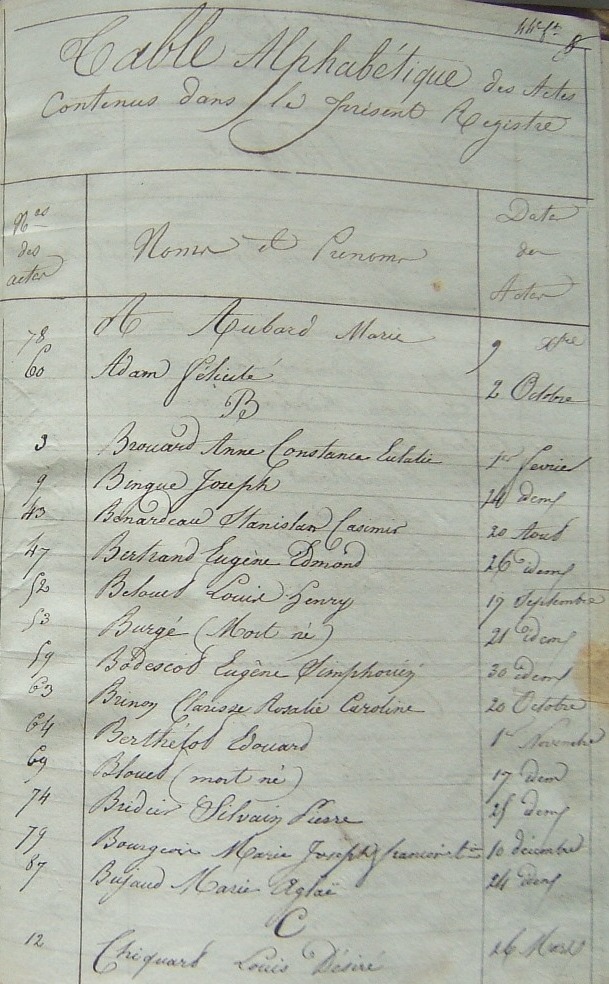 8
Table Alphabétique des Actes
Contenus dans le présent Registre
Nos des actes Noms et Prenoms Date des Actes
A
78 Aubard Marie 9 Xbre
60 Adam félicité 2 Octobre
B
3 Brouard Anne Constance Eulalie 1er fevrier
9 Bingue Joseph 24 idem
43 Bénardeau Stanislas Casimir 20 Aout
47 Bertrand Eugène Edmond 26 idem
52 Belouet Louis henry 17 Septembre
53 Burgé (Mort né) 21 idem
59 Bodescot Eugène Simphorien 30 idem
63 Brinon Clarisse Rosalie Caroline 20 Octobre
64 Berthelot Edouard 1er Novembre
69 Blouet (mort né) 17 idem
74 Bridier Silvain Pierre 25 idem
79 Bourgeois Marie Joseph francois 10 décembre
87 Bujaud Marie Aglaë 24 idem
C
12 Chiquard Louis Désiré 26 Mars